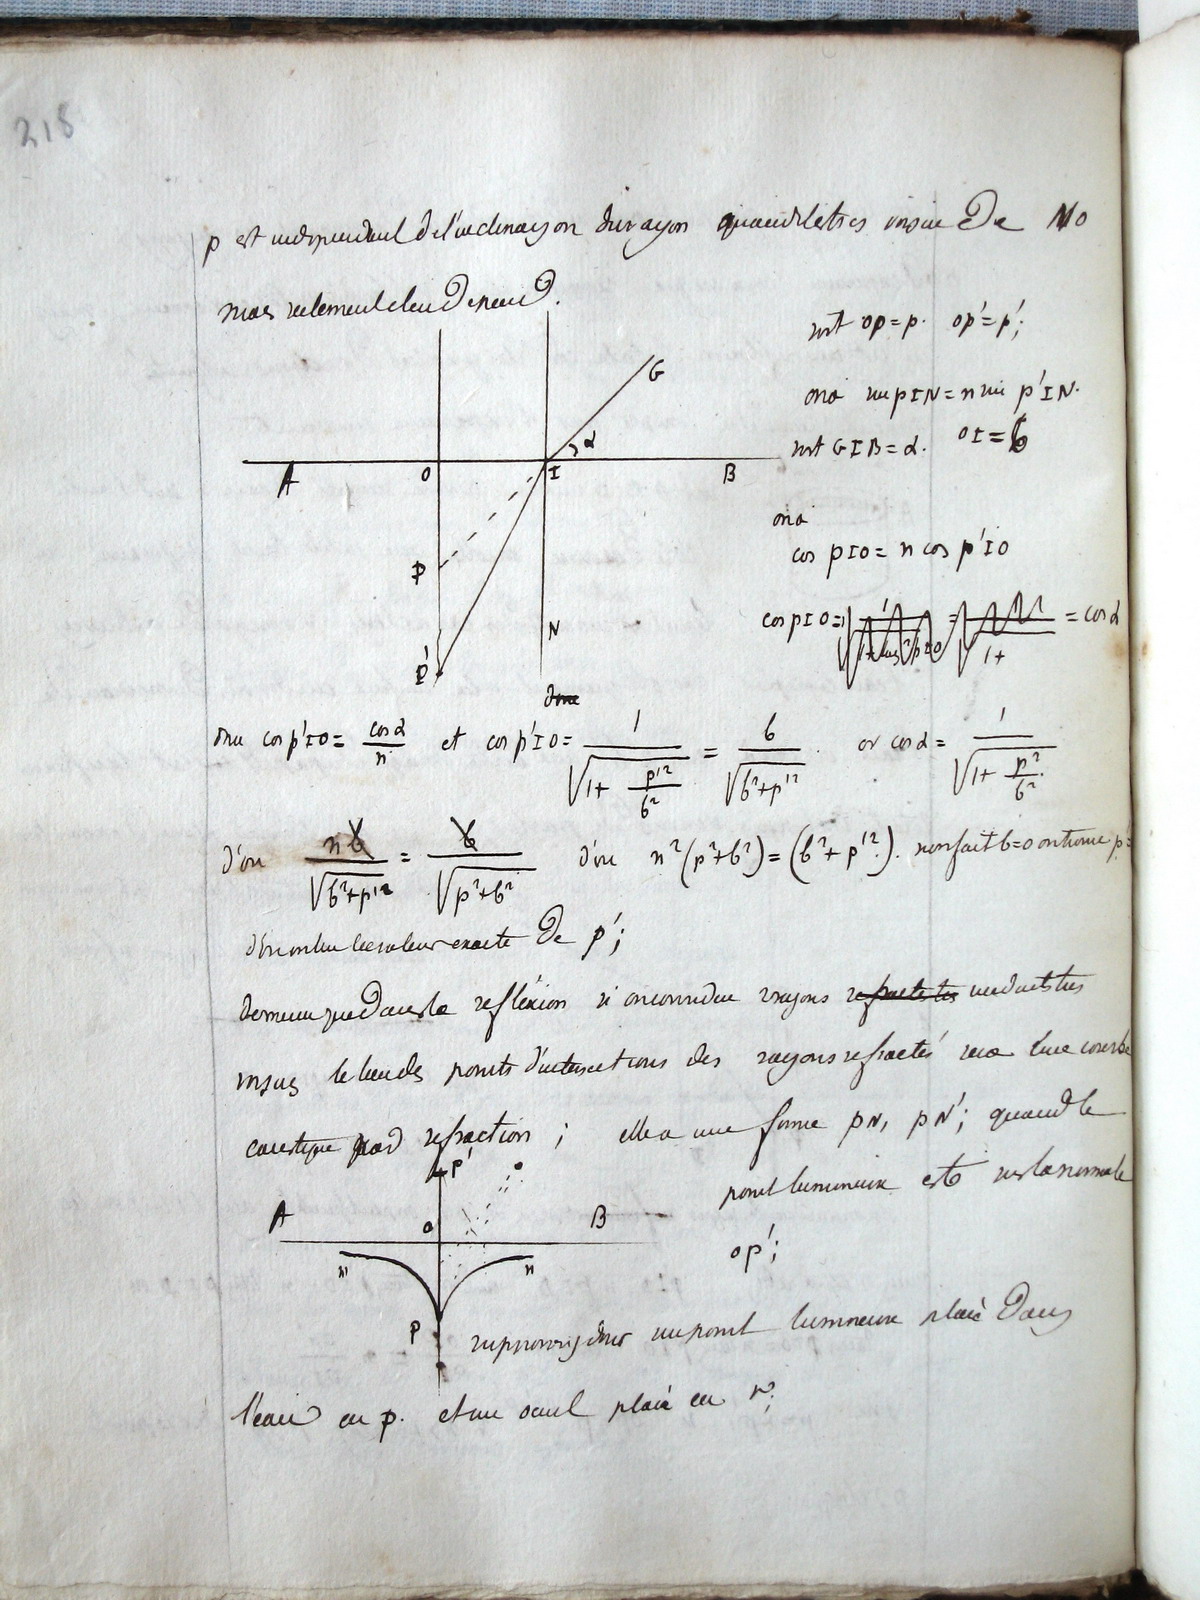 218
p est independant de l'inclinaison du rayon quand il est très voisin de Mo
mais seulement il en depend.
soit op=p. op'=p';
on a sin pIN = n sin p'IN.
soit GIB=α. oI=b
G
α
A O I B
on a
cos pIO = n cos p'IO
P
N
cos pIO = = cos α
1+
P'
donc
donc cos p'IO = cos α / n et cos p'IO = 1 / √(1 + p'²/b²) = b / √(b²+p'²) or cos α = 1 / √(1 + p²/b²)
d'ou n b / √(b²+p'²) = b / √(p²+b²) d'ou n²(p²+b²) = (b²+p'²). si on fait b=0 on trouve p'=
d'ou on tire la valeur exacte de p';
de meme que dans la reflexion si on considere rayons refractés tres
voisins le lieu des points d'intersections des rayons refractés sera une courbe
caustique par refraction ; elle a une forme pN, pN'; quand le
P'
point lumineux est sur la normale
A O B
op';
n' n
P
supposons donc un point lumineux placé dans
l'eau en p. et un oeuil placé en r;